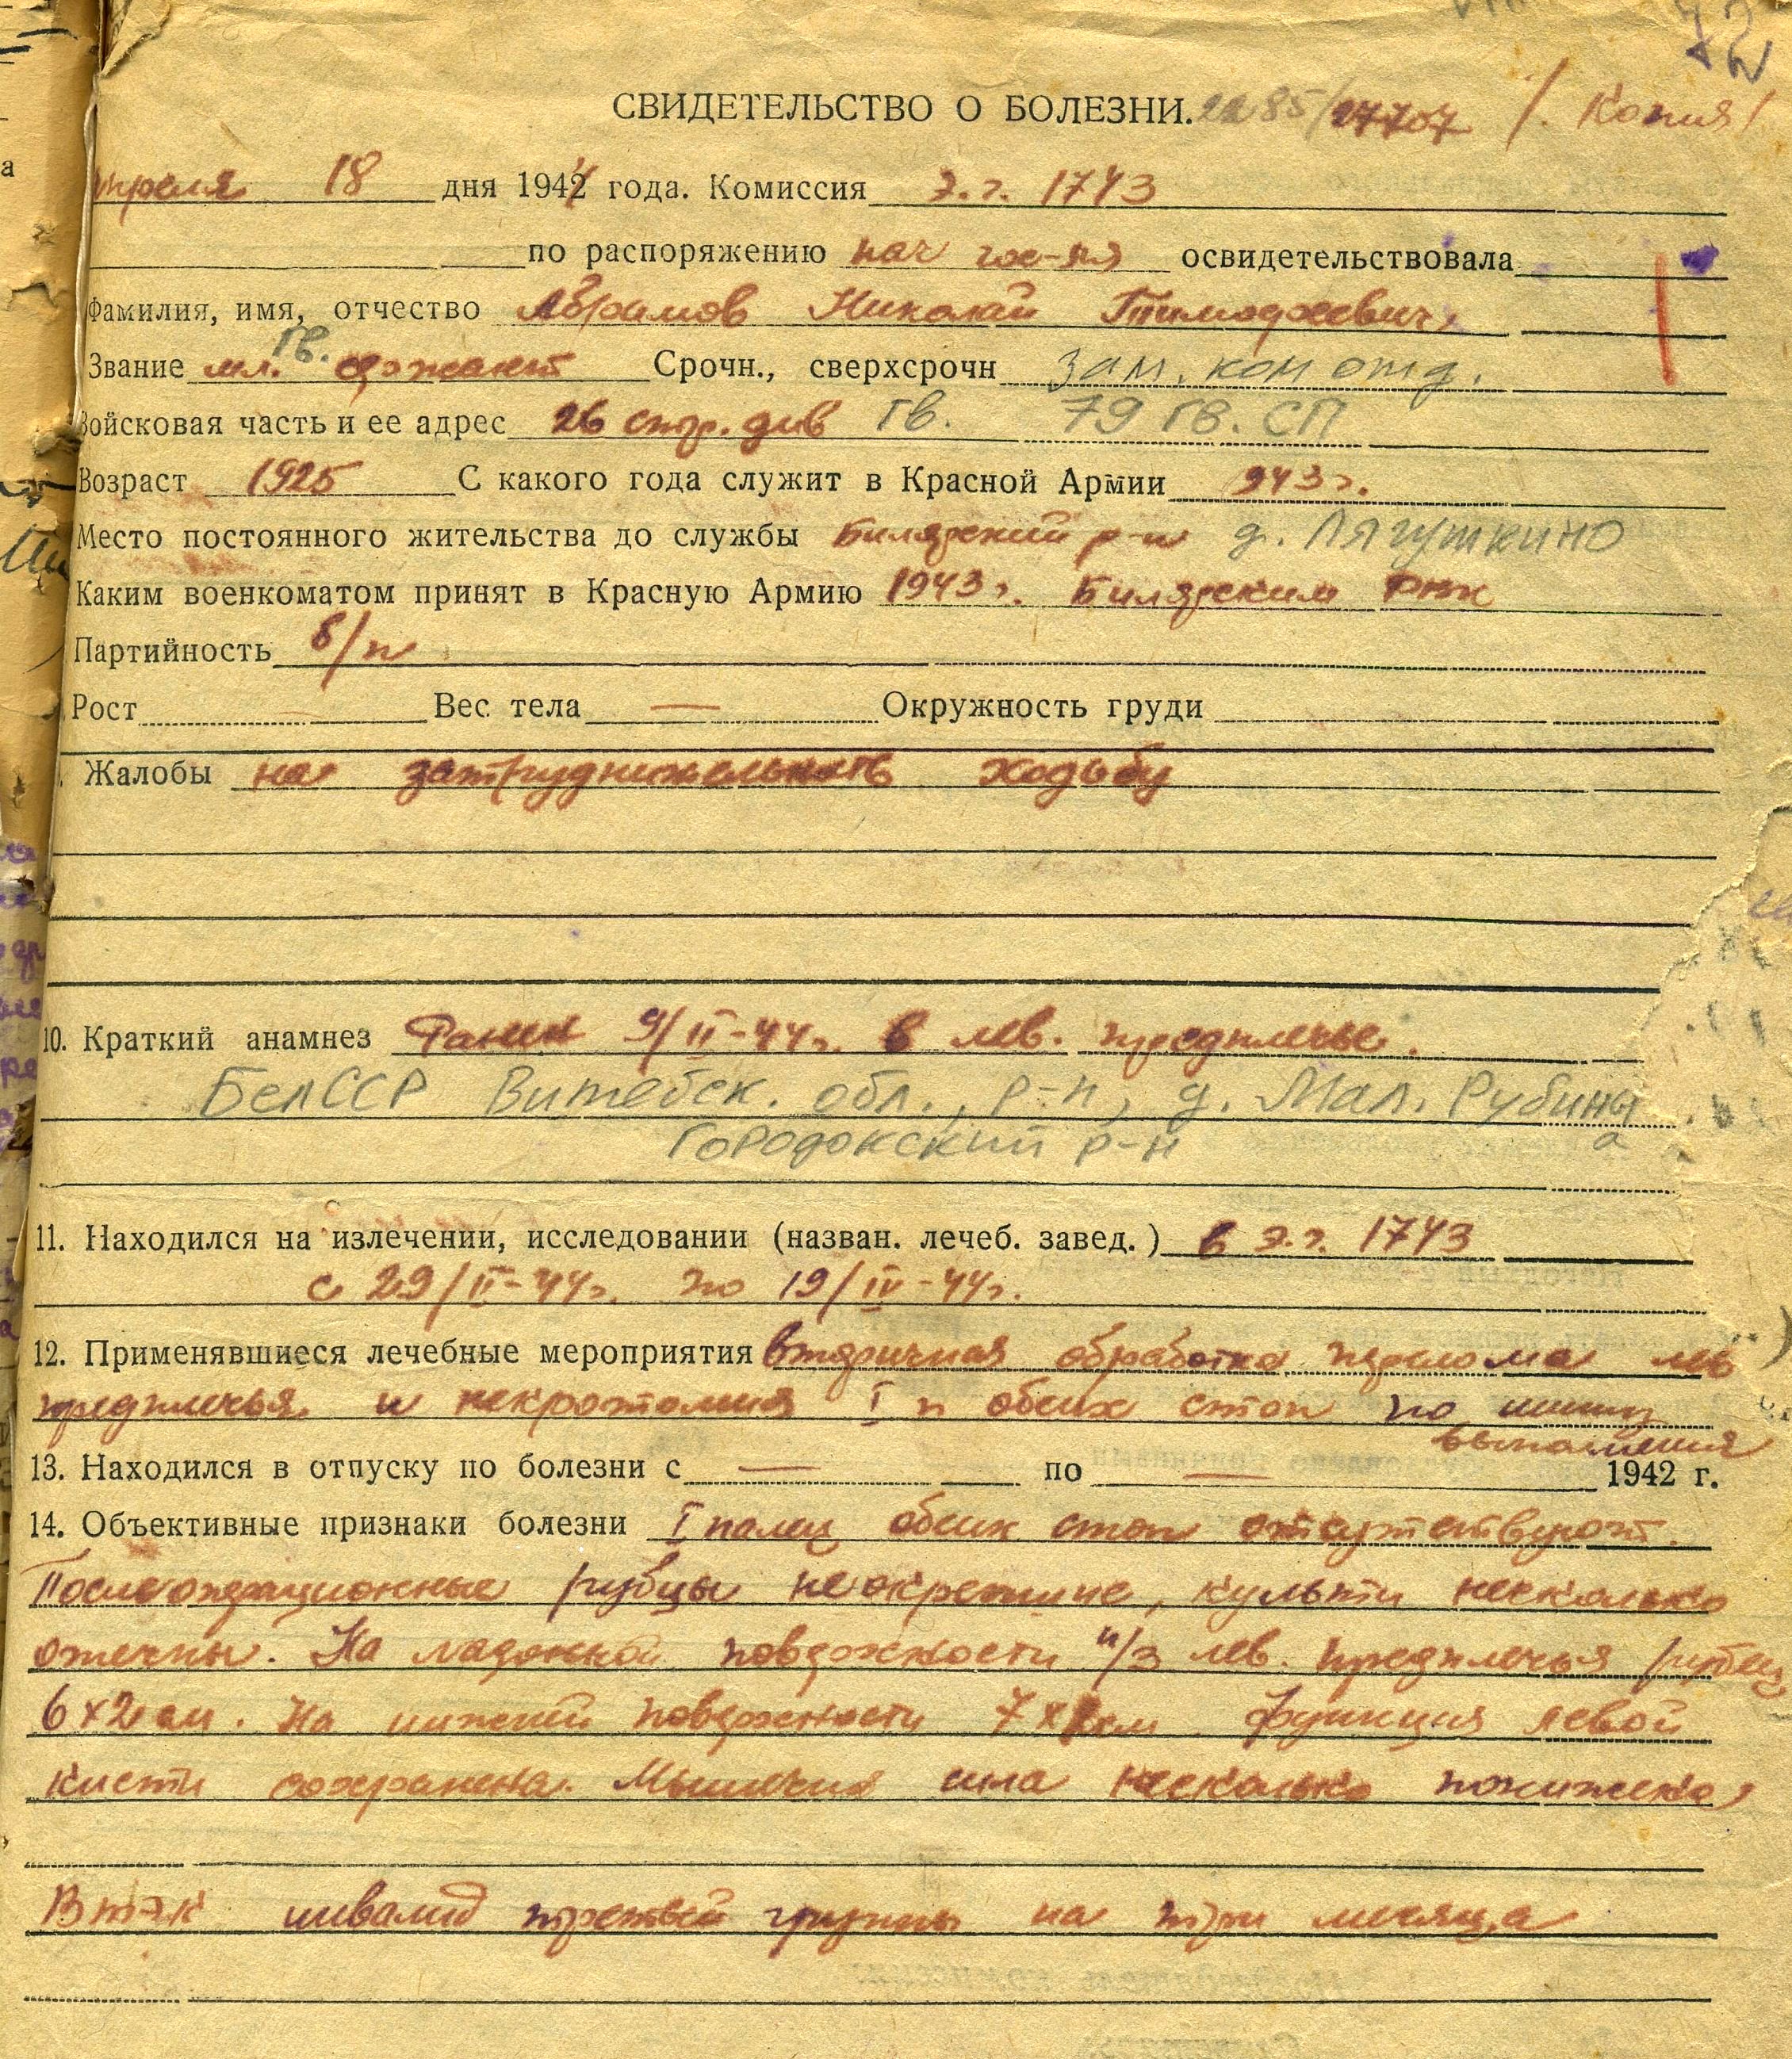 72
СВИДЕТЕЛЬСТВО О БОЛЕЗНИ. 2285/27707 /. Копия/
апреля 18 дня 1944 года. Комиссия э.г. 1743
по распоряжению нач гос-ля освидетельствовала
Фамилия, имя, отчество Абрамов Николай Тимофеевич
Звание гв. мл. сержант Срочн., сверхсрочн зам. ком отд.
Войсковая часть и ее адрес 26 стр. див гв. 79 гв. СП
Возраст 1925 С какого года служит в Красной Армии 943 г.
Место постоянного жительства до службы Билярский р-н д. Лягушкино
Каким военкоматом принят в Красную Армию 1943 г. Билярским РВК
Партийность б/п
Рост — Вес тела — Окружность груди
Жалобы на затруднительность ходьбу
10. Краткий анамнез Ранен 9/II-44г. в лев. предплечье.
БелССР Витебск. обл., р-н, д. Мал. Рубины
Городокский р-н а
11. Находился на излечении, исследовании (назван. лечеб. завед.) в э.г. 1743
с 29/II-44г. по 19/IV-44г.
12. Применявшиеся лечебные мероприятия вторичная обработка перелома лев
предплечья и некротомия I п обеих стоп по линии
13. Находился в отпуску по болезни с — по — 1942 г.
14. Объективные признаки болезни I палец обеих стоп отсутствуют.
Послеоперационные рубцы неокрепшие, культи несколько
отечны. На ладонной поверхности н/3 лев. предплечья рубец
6х2 см. На нижней поверхности 7х см. Функция левой
кисти сохранена. Мышечная сила несколько понижена
Втэк инвалид третьей группы на три месяца